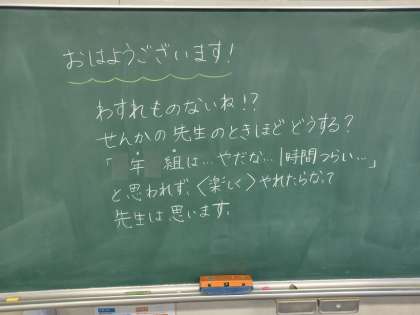 おはようございます!
わすれものないね!?
せんかの先生のときほどどうする?
「 年 組は…やだな…1時間つらい…」
と思われず、〈楽しく〉やれたらなって
先生は思います。